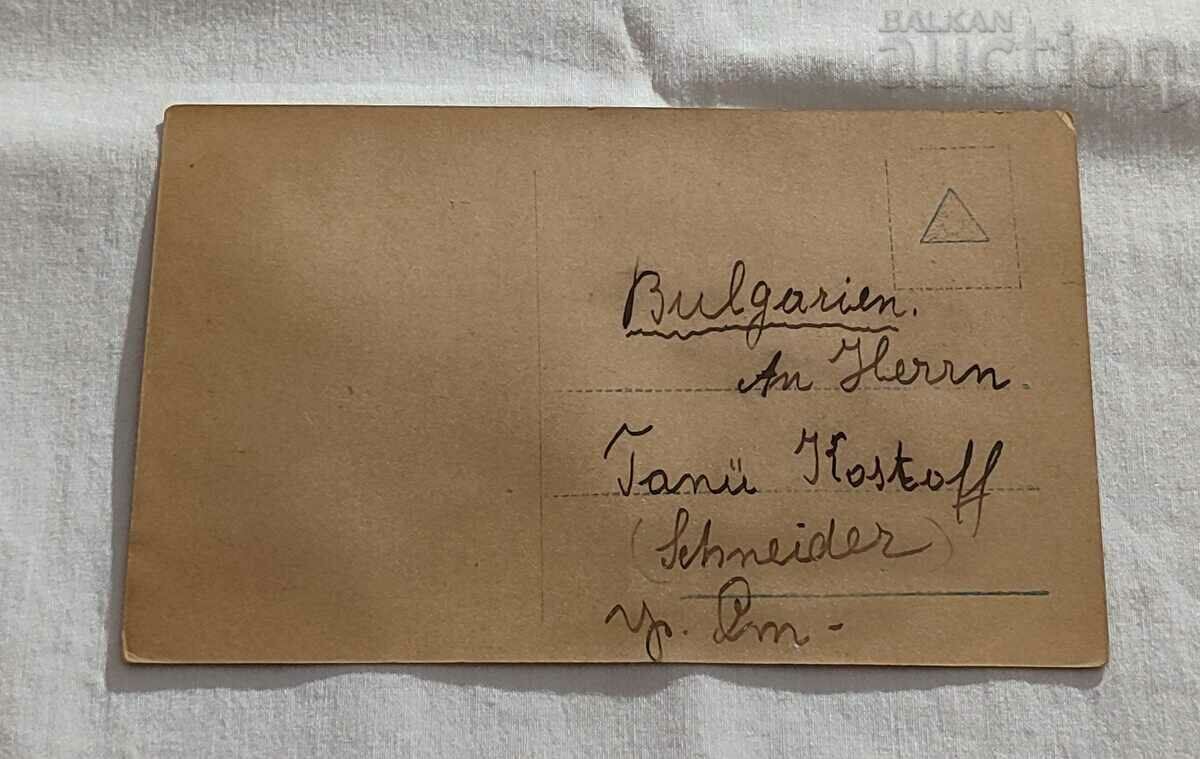 BALKAN
auction
Bulgarien.
An Herrn.
Tanü Kostoff
(Schneider)